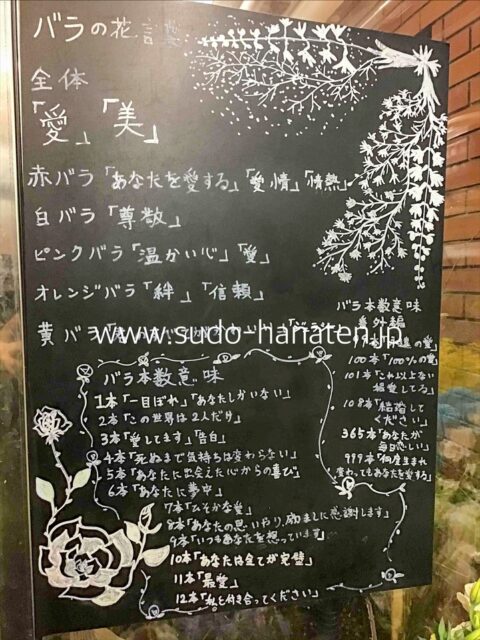 バラの花言葉
全体
「愛」「美」
赤バラ「あなたを愛する」「愛情」「情熱」
白バラ「尊敬」
ピンクバラ「温かい心」「愛」
オレンジバラ「絆」「信頼」
黄バラ
www.sudo-hanaten.jp
バラ本数意味
1本「一目ぼれ」「あなたしかいない」
2本「この世界は2人だけ」
3本「愛してます」「告白」
4本「死ぬまで気持ちは変わらない」
5本「あなたに出会えた心からの喜び」
6本「あなたに夢中」
7本「ひそかな愛」
8本「あなたの思いやり、励ましに感謝します」
9本「いつもあなたを想っています」
10本「あなたは全てが完璧」
11本「最愛」
12本「私と付き合ってください」
バラ本数意味
番外編
の愛」
100本「100%の愛」
101本「これ以上ない
程愛してる」
108本「結婚して
ください」
365本「あなたが
毎日恋しい」
999本「何度生まれ
変わってもあなたを愛する」